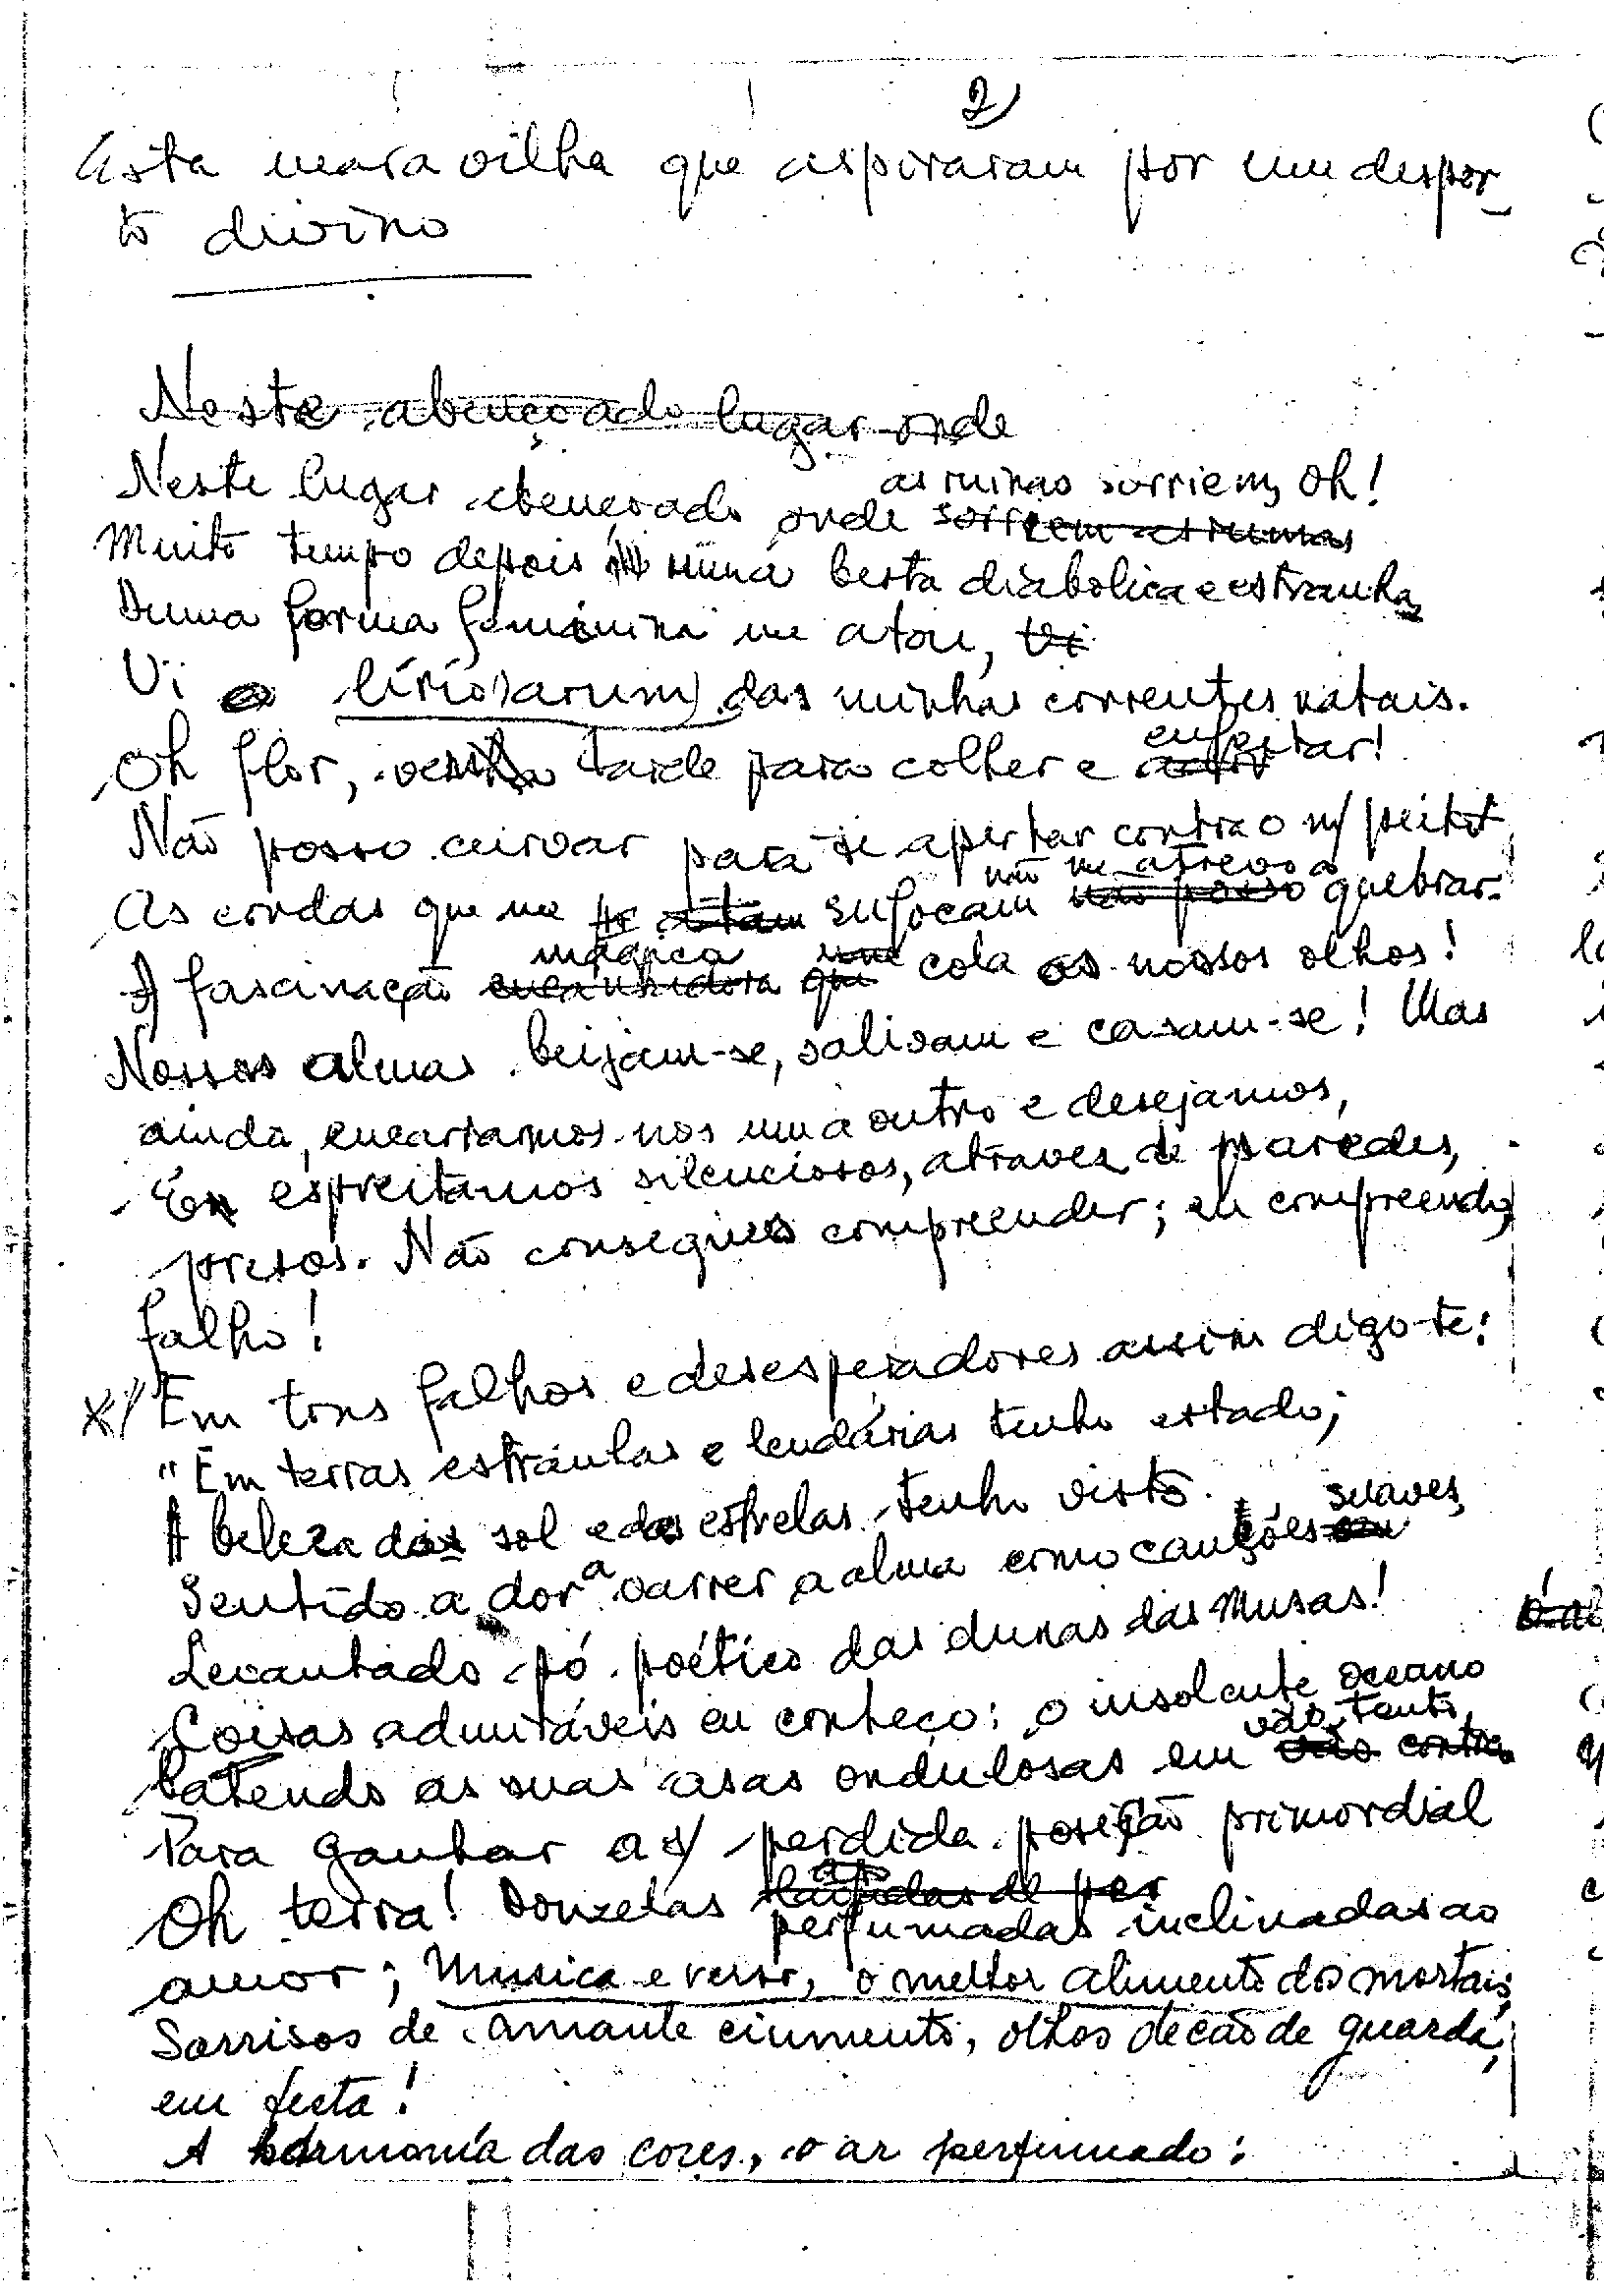 2)
Esta maravilha que aspiraram por um desper-
to divino
Neste abençoado lugar onde
Neste lugar abençoado onde sorriem as ruinas as ruinas sorriem, oh!
Muito tempo depois numa besta diabolica e estranha
Duma forma feminina me atou, vi
Vi o lírio (arum) das minhas correntes natais.
Oh flor, venho tarde para colher e enfeitar!
Não posso curvar para te apertar contra o m/ peito
As cordas que me atam sufocam não posso não me atrevo a quebrar.
A fascinação encantadora que mágica cola os nossos olhos!
Nossas almas beijam-se, salivam e casam-se! Mas
ainda, encaramos-nos um a outro e desejamos,
E espreitamos silenciosos, atraves de paredes,
presos. Não consegues compreender; eu compreendo,
falho!
x// Em tons falhos e desesperadores assim digo-te:
"Em terras estranhas e lendárias tenho estado;
A beleza do sol e das estrelas tenho visto.
Sentido a dor a varrer a alma como canções suaves,
Levantado pó poético das dunas das Musas!
Coisas admiráveis eu conheço: o insolente oceano
batendo as suas asas ondulosas em vão contra vão tento,
Para ganhar a s/ perdida posição primordial
Oh terra! Donzelas perfumadas inclinadas ao
amor; Musica e verso, o melhor alimento dos mortais;
Sorrisos de amante ciumento, olhos de cão de guarda,
em festa!
A harmonia das cores, o ar perfumado: